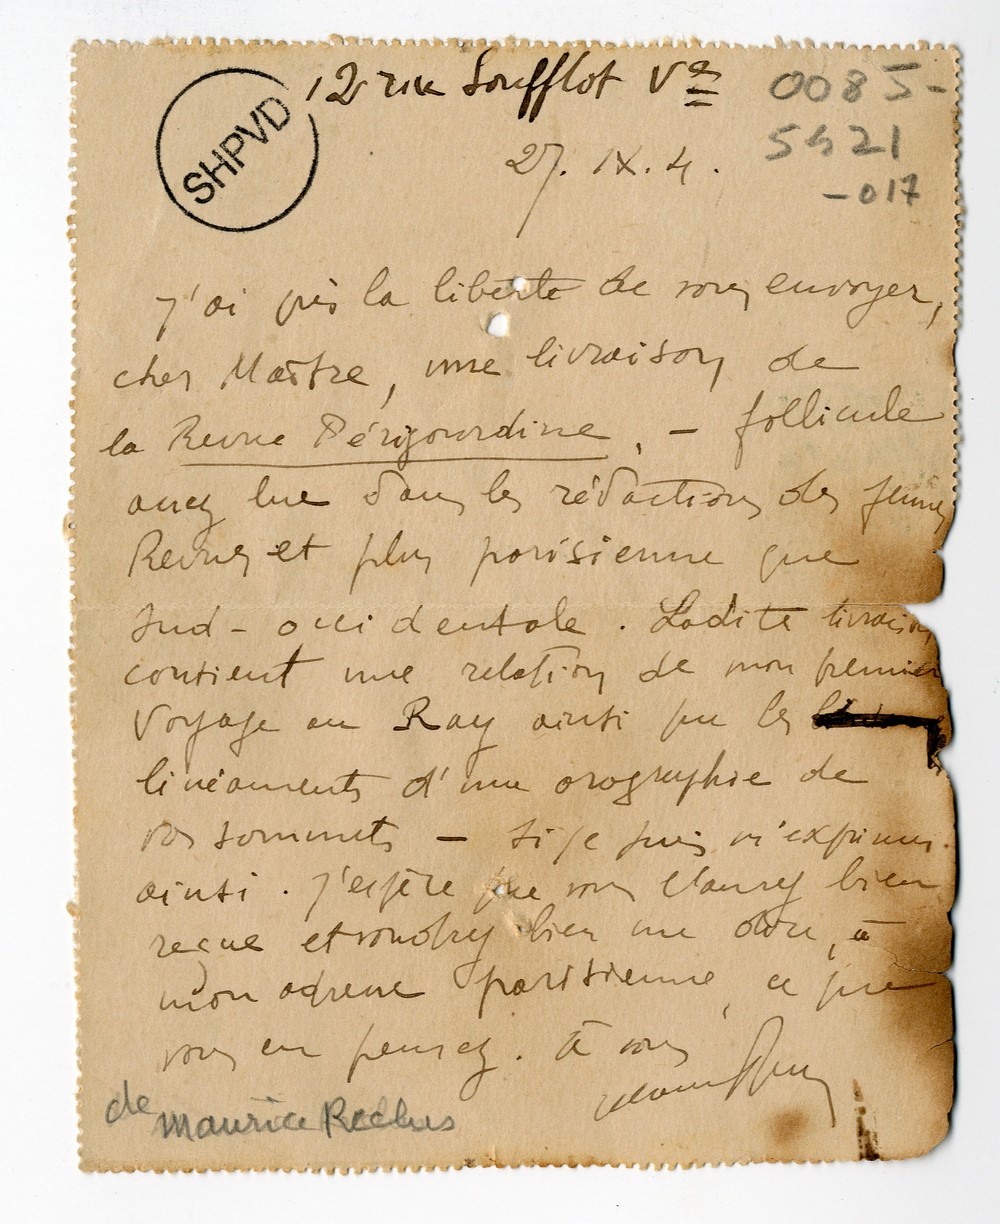 SHPVD
12 rue Soufflot Ve
0085-
5421
-017
27. IX. 4.
J'ai pris la liberté de vous envoyer,
cher Maître, une livraison de
la Revue Périgourdine, - follicule
assez lue dans les rédactions des jeunes
Revues et plus parisienne que
sud-occidentale. Ladite livraison
contient une relation de mon premier
voyage au Ray ainsi que les
linéaments d'une orographie de
vos sommets - si je puis m'exprimer
ainsi. J'espère que vous l'aurez bien
reçue et voudrez bien me dire, à
mon adresse parisienne, ce que
vous en pensez. à vous
de Maurice Reclus